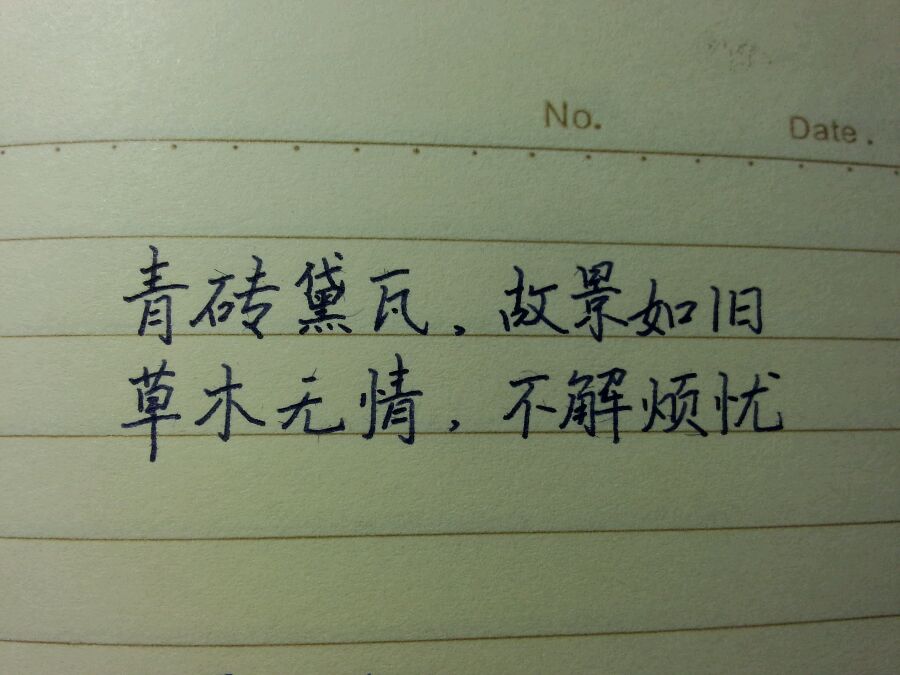 No.
Date.
青砖黛瓦,故景如旧
草木无情,不解烦忧